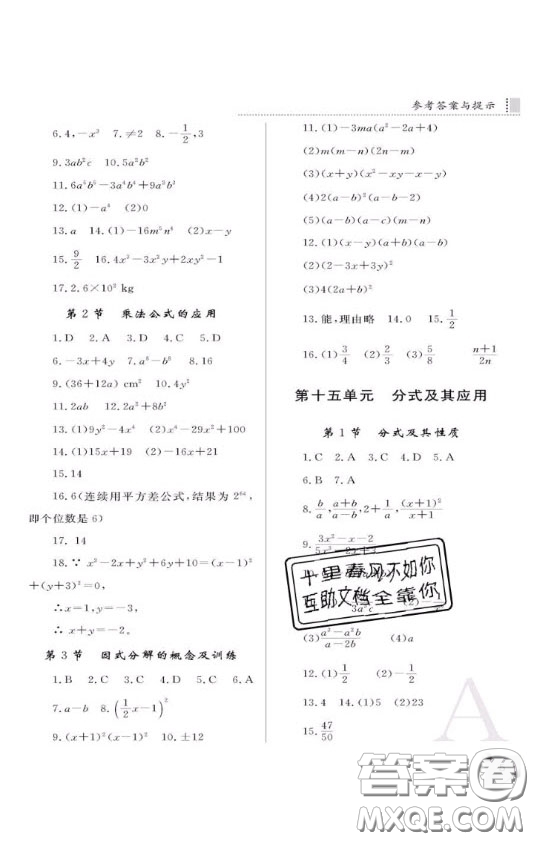 参考答案与提示
6.4,-x³ 7.≠2 8.-1/2,3
9.3ab²c 10.5a²b²
11.6a⁵b⁵-3a⁴b⁴+9a³b³
12.(1)-a⁶ (2)0
13.a 14.(1)-16m⁵n⁴ (2)x-y
15.9/2 16.4x³-3x²y+2xy²-1
17.2.6×10³ kg
第2节 乘法公式的应用
1.D 2.A 3.D 4.D 5.B
6.-3x+4y 7.a⁸-b⁸ 8.16
9.(36+12a) cm² 10.4y²
11.2ab 12.2a²+2b²
13.(1)9y²-4x⁴ (2)x⁴-29x²+100
14.(1)15x+19 (2)-16x+21
15.14
16.6(连续用平方差公式,结果为2⁶⁴,
即个位数是6)
17. 14
18.∵ x²-2x+y²+6y+10=(x-1)²
+(y+3)²=0,
∴x=1,y=-3.
∴ x+y=-2.
第3节 因式分解的概念及训练
1.B 2.C 3.B 4.D 5.C 6.A
7.a-b 8.(1/2x-1)²
9.(x+1)²(x-1)² 10.±12
11.(1)-3ma(a²-2a+4)
(2)m(m-n)(2n-m)
(3)(x+y)(x²-xy-x-y)
(4)2(a-b)²(a-b-2)
(5)(a-b)(a-c)(m-n)
12.(1)(x-y)(a+b)(a-b)
(2)(2-3x)²(2+3x)²
(3)4(2a+b)²
13.能,理由略 14.0 15.1/2
16.(1)3/4 (2)2/3 (3)5/8 n+1/2n
第十五单元 分式及其应用
第1节 分式及其性质
1.C 2.A 3.C 4.C 5.A
6.B 7.A
8.b/a,a+b/a-b,2+1/a,(x+1)²/x+1
9.3x²-x-2
十里春风不如你
互助文档全靠你
(3)a²-a²b/a-2b (4)a
12.(1)1/2 (2)-1/2
13.4 14.(1)5 (2)23
15.47/50
A
答案圈
MXQE.COM